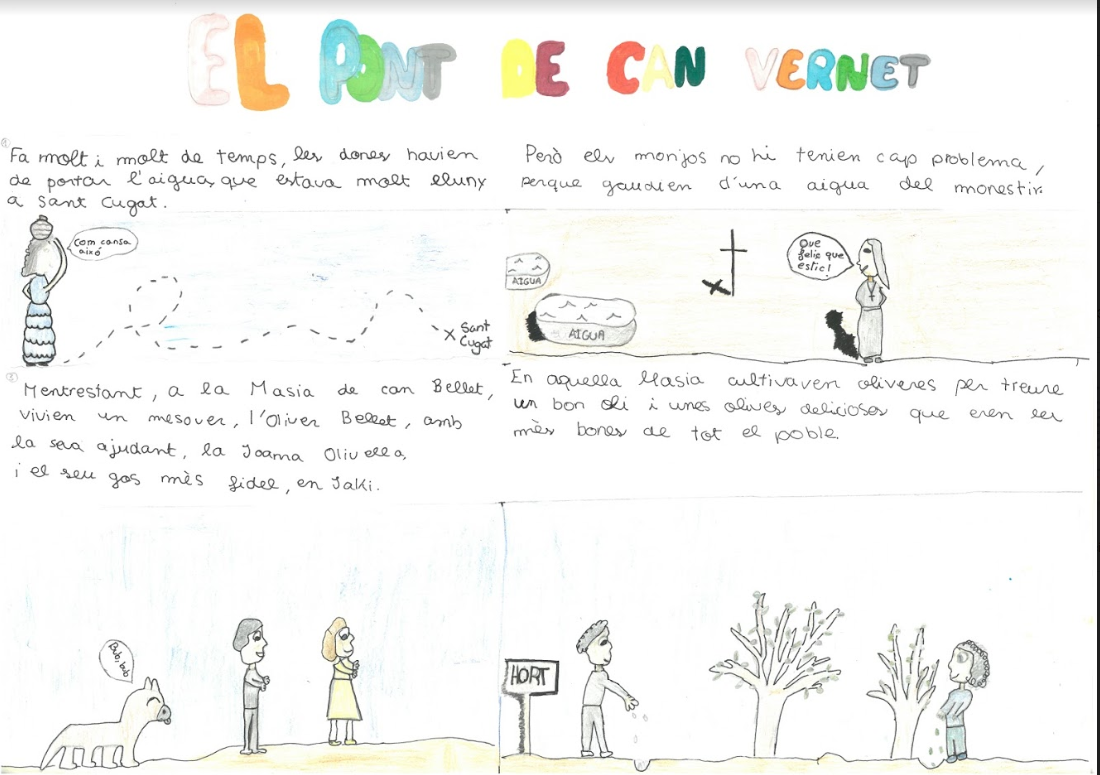 EL PONT DE CAN VERNET
①
Fa molt i molt de temps, les dones havien
de portar l'aigua, que estava molt lluny
a Sant Cugat.
Com cansa
això
x Sant
Cugat
Però els monjos no hi tenien cap problema,
perque gaudien d'una aigua del monestir.
Que
feliç que
estic!
AIGUA
AIGUA
②
Mentrestant, a la Masia de can Bellet,
vivien un mesover, l'Oliver Bellet, amb
la seva ajudant, la Joama Olivella,
i el seu gos mès fidel, en Jaki.
Bub, bub
En aquella Masia cultivaven oliveres per treure
un bon oli i unes olives delicioses que eren les
mès bones de tot el poble.
HORT